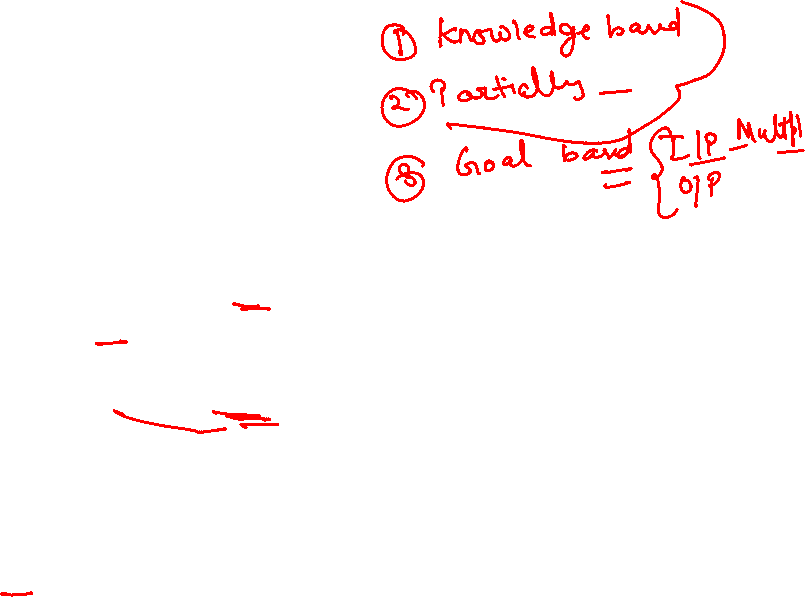 ① Knowledge band
② Partially —
③ Goal band { I/P - Multipl
O/P